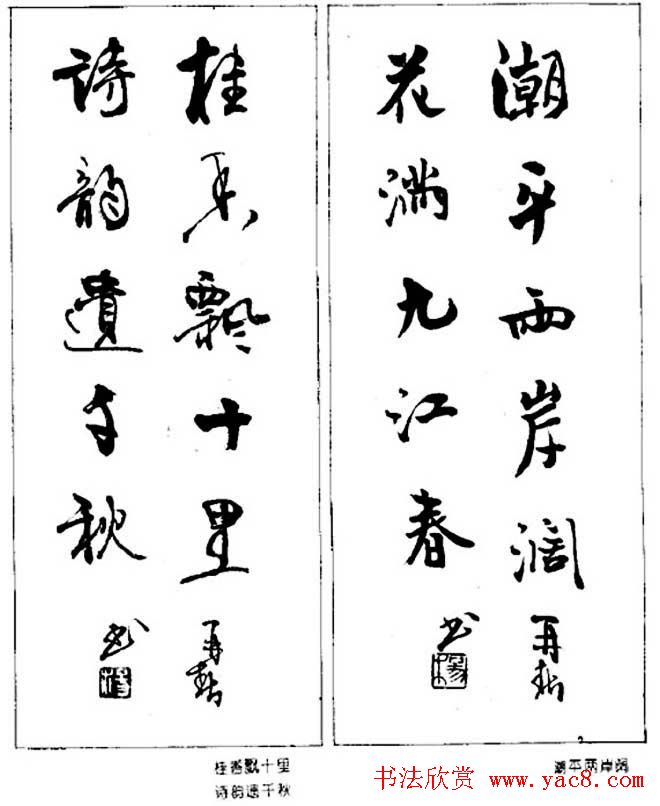 潮平兩岸闊再春
花满九江春书
桂香飄十里再春
詩韵遺千秋书
潮平两岸阔
桂香飘十里
诗韵遗千秋
书法欣赏 www.yac8.com